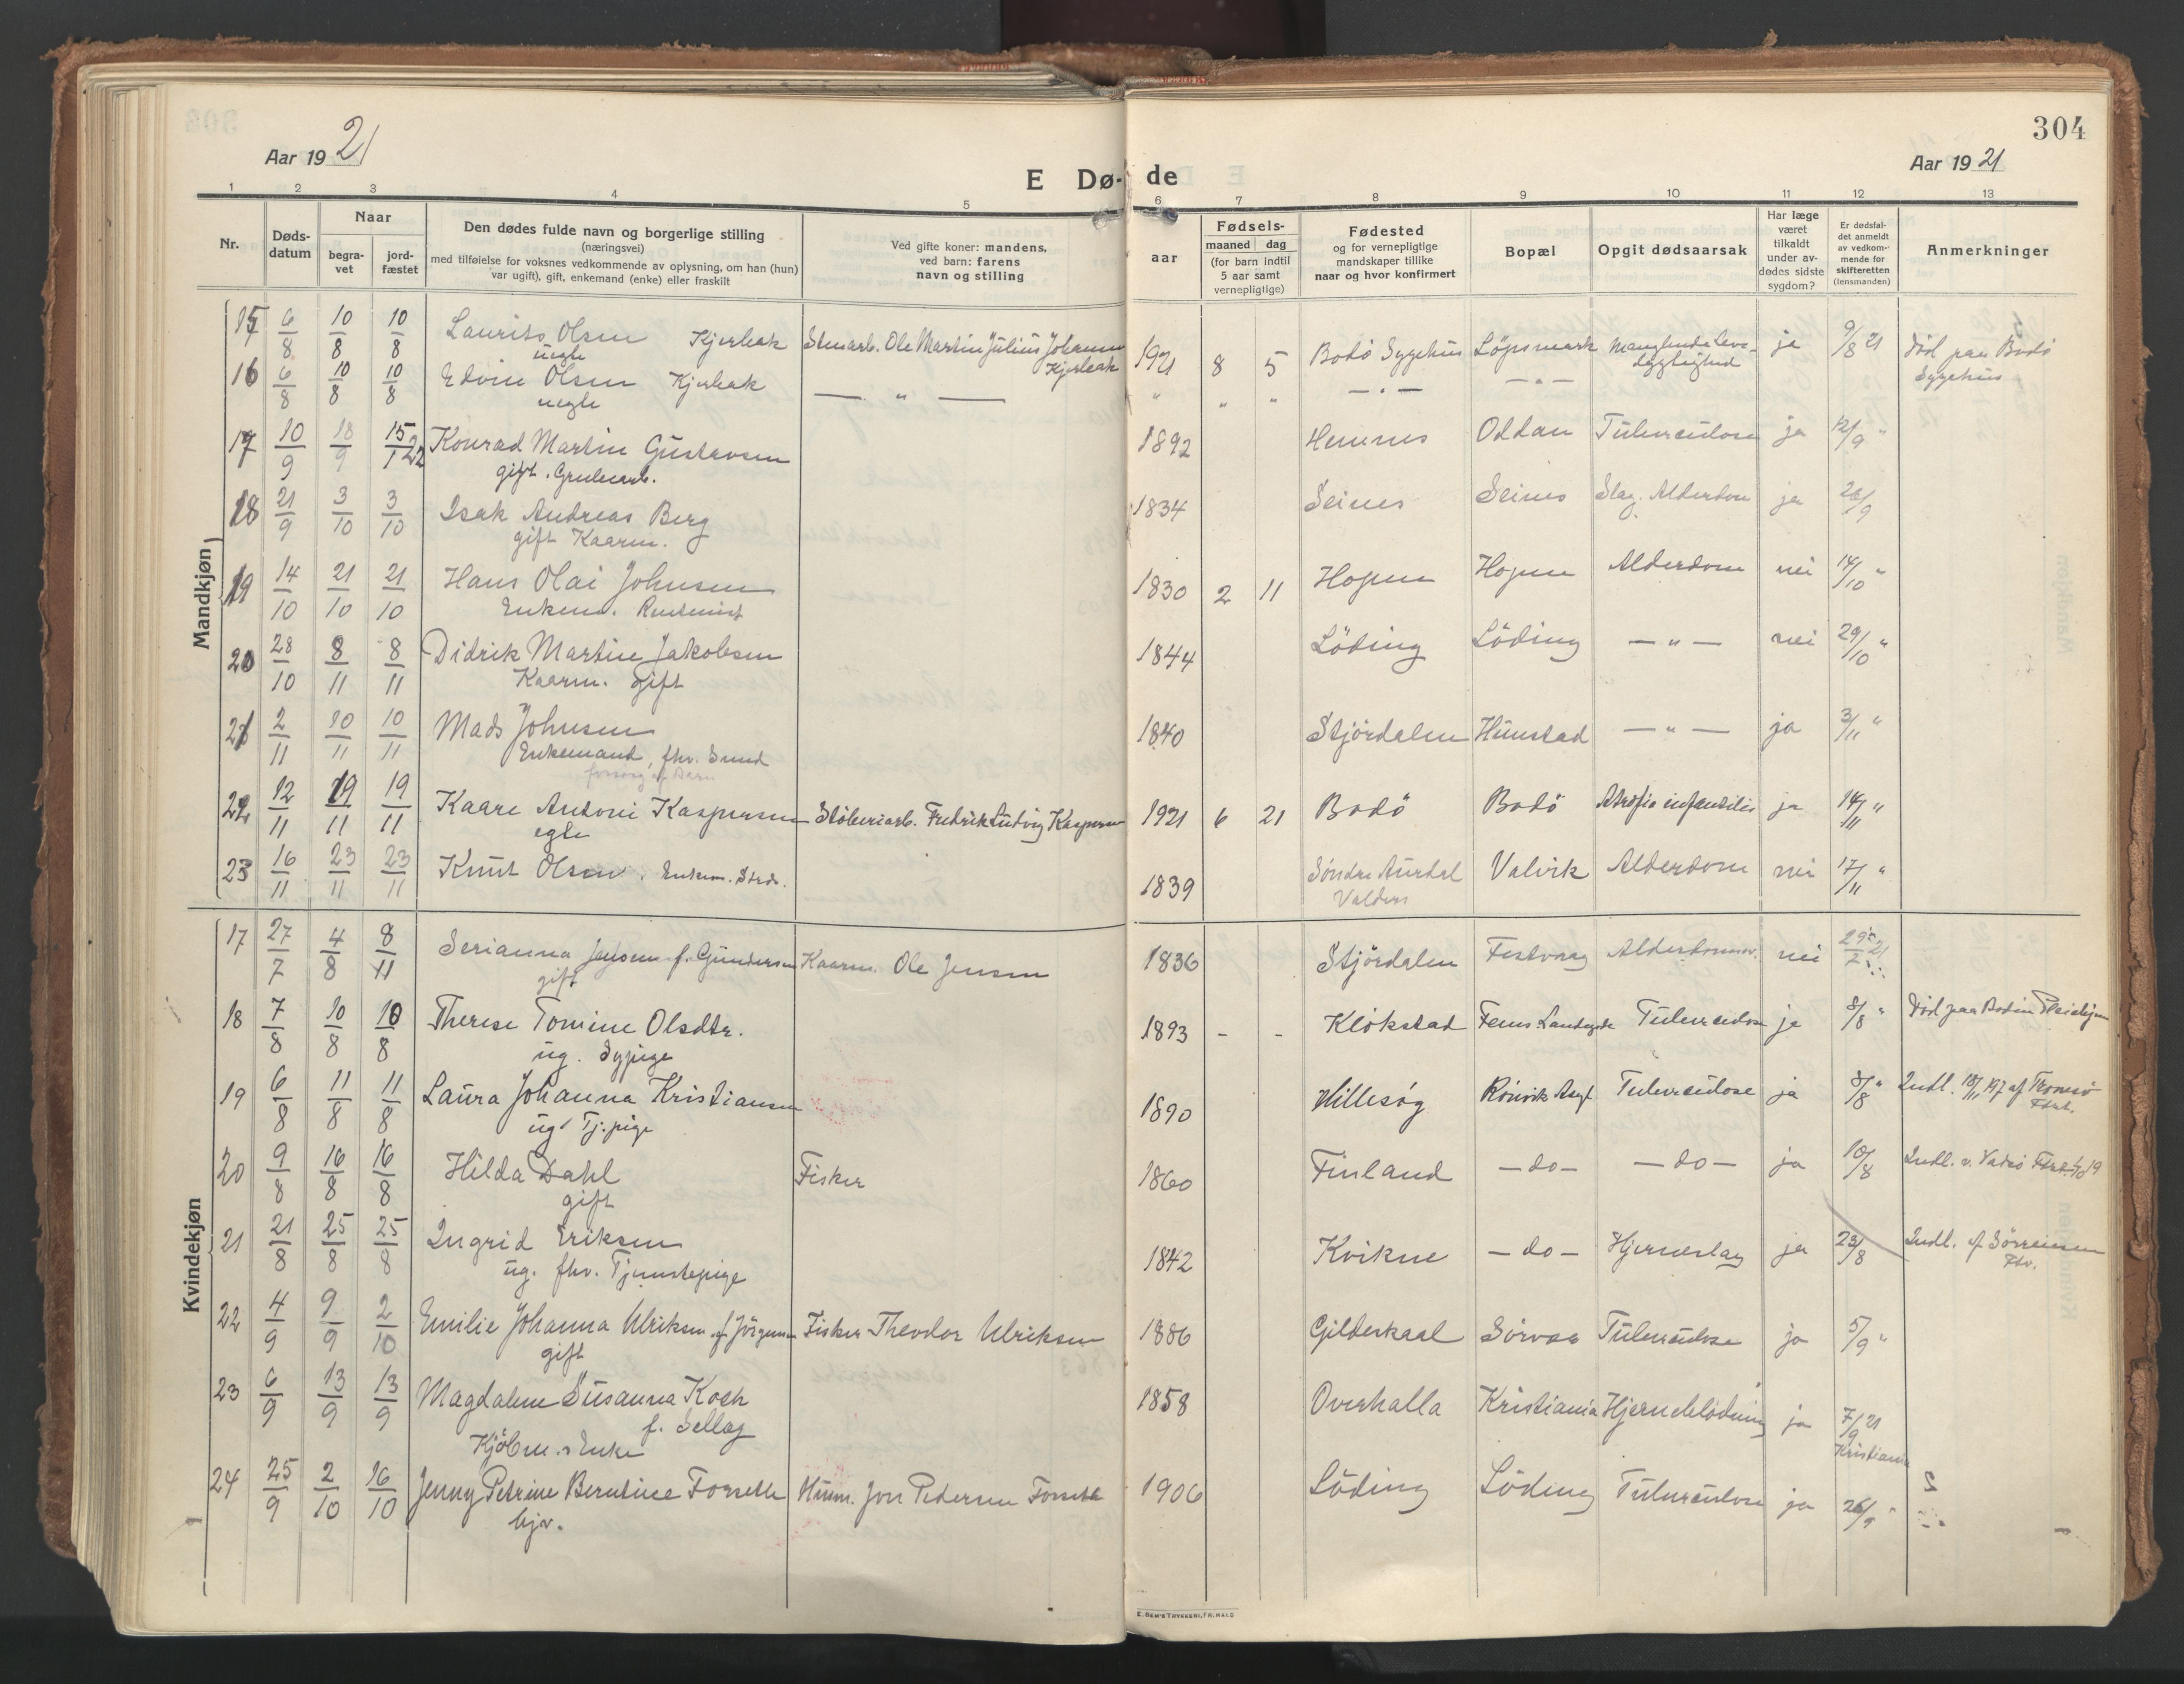 304
Aar 1921
Aar 1921
E Dø- de
1 2 3 4 5 6 7 8 9 10 11 12 13
Nr.
Døds-datum
Naar
begra-vet
jord-fæstet
Den dødes fulde navn og borgerlige stilling
(næringsvei)
med tilføielse for voksnes vedkommende av oplysning, om han (hun)
var ugift), gift, enkemand (enke) eller fraskilt
Ved gifte koner: mandens,
ved barn: farens
navn og stilling
aar
Fødsels-
maaned dag
(for barn indtil
5 aar samt
vernepligtige)
Fødested
og for vernepligtige
mandskaper tillike
naar og hvor konfirmert
Bopæl
Opgit dødsaarsak
Har læge
været
tilkaldt
under av-
dødes sidste
sygdom?
Er dødsfal-
det anmeldt
av vedkom-
mende for
skifteretten
(lensmanden)
Anmerkninger
Mandkjøn
15 6/8 10/8 10/8 Laurits Olsen Kjerbak Stenarb. Ole Martin Julius Johansen 1921 8 5 Bodö Sygehus Löpsmark Manglende Leve- ja 9/8 21 Död paa Bodö
uegte Kjerbak dygtighed Sygehus
16 6/8 10/8 10/8 Edvin Olsen Kjerbak — " — " " " — " — — " —
uegte
17 10/9 18/9 15/1 22 Konrad Martin Gustavsen 1892 Hemnes Oddan Tuberculose ja 12/9 "
gift. Grubearb.
18 21/9 3/10 3/10 Isak Andreas Berg 1834 Seines Seines Slag. Alderdom ja 26/9
gift Kaarm.
19 14/10 21/10 21/10 Hans Olai Johnsen 1830 2 11 Hopen Hopen Alderdom nei 14/10 "
Enkem. Rentenist
20 28/10 8/11 8/11 Didrik Martin Jakobsen 1844 Löding Löding — " — nei 29/10 "
Kaarm. gift
21 2/11 10/11 10/11 Mads Johnsen 1840 Stjördalen Hunstad — " — ja 3/11 "
Enkemand, fhv. Smed
forsörg af Barn
22 12/11 19/11 19/11 Kaare Antoni Kaspersen Stöberiarb. Fredrik Ludvig Kaspersen 1921 6 21 Bodö Bodö Atrofia infantilis ja 14/11 "
egte
23 16/11 23/11 23/11 Knut Olsen. Enkem. 1839 Söndre Aurdal Valvik Alderdom nei 17/11 "
Valders
Kvindekjøn
17 27/7 4/8 8/11 Serianna Jensen f. Gundersen Kaarm. Ole Jensen 1836 Stjördalen Festvaag nei
gift
18 7/8 10/8 10/8 Therese Tomine Olsdtr. 1893 - - Klökstad Fenes Landegode Tuberculose ja 8/8 " Död paa Bodin Pleiehjem
ug. Sypige
19 6/8 11/8 11/8 Laura Johanna Kristiansen 1890 Hillesög Rönvik Asyl Tuberculose ja 8/8 " Indl. 18/11 197 af Tromsö
ug. Tj.pige Fsnt.
20 9/8 16/8 16/8 Hilda Dahl Fisker 1860 Finland — do — — do — ja 10/8 Indl. v. Vadsö
gift
21 21/8 25/8 25/8 Ingrid Eriksen 1842 Kvikne — do — Hjerneslag ja 23/8 Indl. af Sörreisen
ug. fhv. Tjenstepige Fsv.
22 4/9 9/9 2/10 Emilie Johanna Ulriksen f. Jörgensen Fisker Theodor Ulriksen 1886 Gildeskaal Sörvaa Tuberculose ja 5/9 "
gift
23 6/9 13/9 13/9 Magdalene Susanna Koch 1858 Overhalla Kristiania Hjerneblödning ja 7/9 21
f. Sellæg Kristiania
Kjöbm.s Enke
24 25/9 2/10 16/10 Jenny Petrine Berntine Forseth Husm. Jon Pedersen Forseth 1906 Löding Löding Tuberculose ja 26/9 "
hjv.
E. SEM'S TRYKKERI, FR.HALD